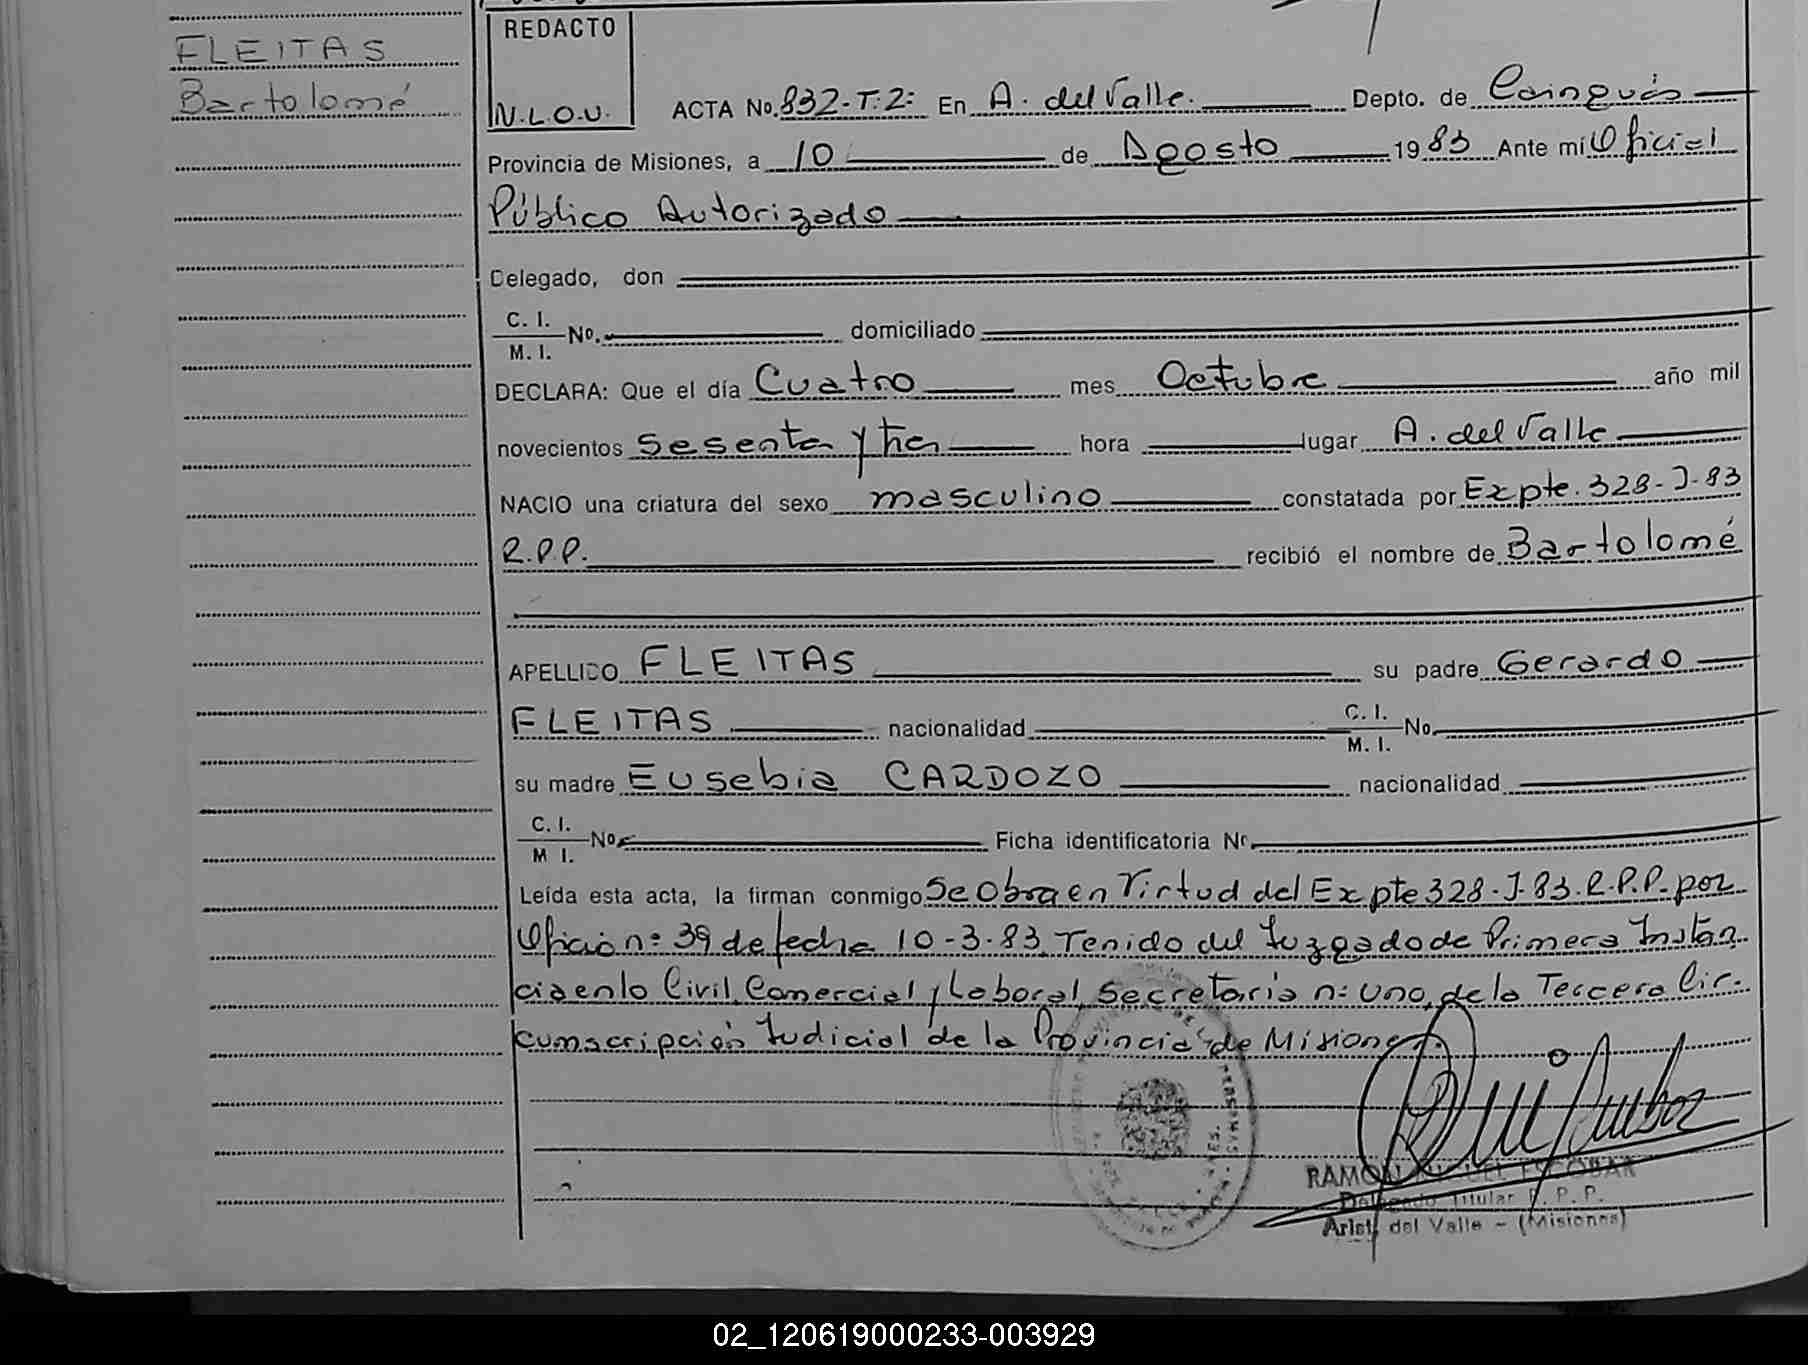 FLEITAS
Bartolomé
REDACTO
N.L.O.U.
ACTA No. 832-T:2: En A. del Valle. Depto. de Cainguás
Provincia de Misiones, a 10 de Agosto 1983 Ante mí Oficial
Público Autorizado
Delegado, don
C. I.
M. I. No. domiciliado
DECLARA: Que el día Cuatro mes Octubre año mil
novecientos sesenta y tres hora lugar A. del Valle
NACIO una criatura del sexo masculino constatada por Expte. 328-J-83
R.P.P. recibió el nombre de Bartolomé
APELLIDO FLEITAS su padre Gerardo
FLEITAS nacionalidad C. I.
M. I. No.
su madre Eusebia CARDOZO nacionalidad
C. I.
M I. No. Ficha identificatoria Nº.
Leída esta acta, la firman conmigo Se Obra en Virtud del Expte 328-J-83.R.P.P. por
Oficio n: 39 de fecha 10-3-83, Tenido del Juzgado de Primera Instan
cia en lo Civil, Comercial y Laboral, Secretaría n: Uno, de la Tercera Cir-
cunscripción Judicial de la Provincia de Misiones.
RAMON MIGUEL ESCOBAR
Delegado Titular R. P. P.
Arist. del Valle - (Misiones)
02_120619000233-003929